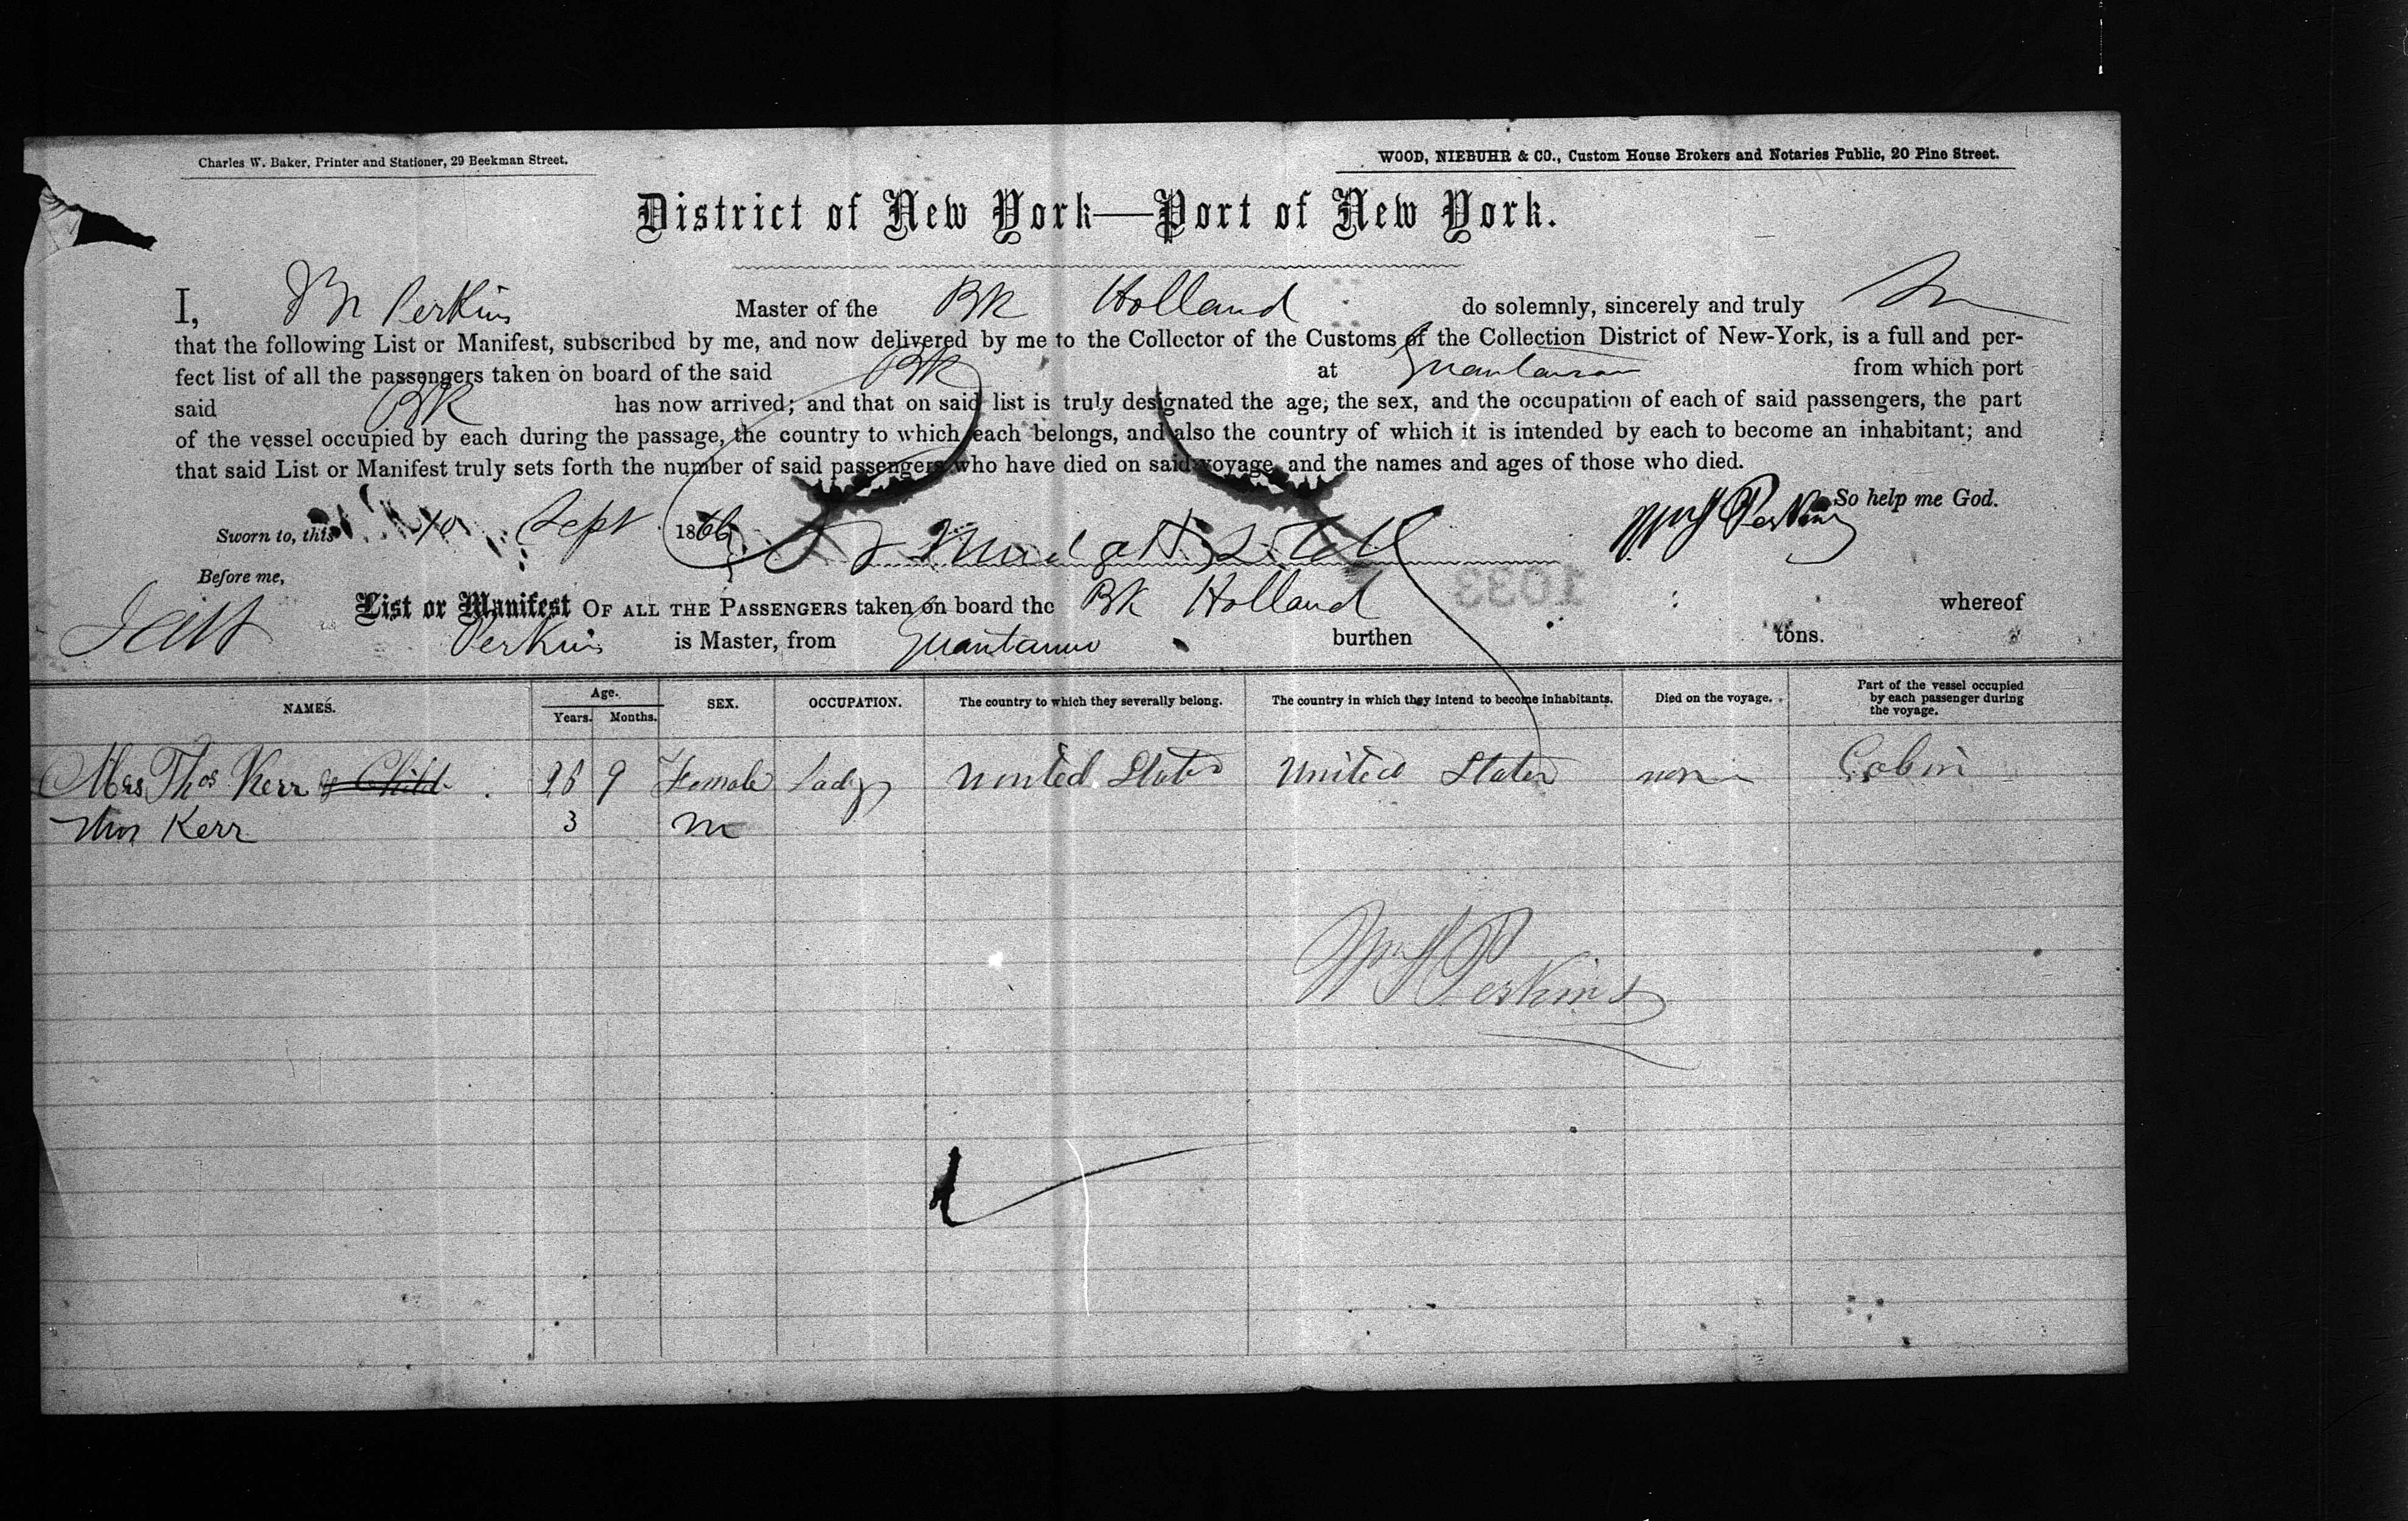 Charles W. Baker, Printer and Stationer, 29 Beekman Street.
WOOD, NIEBUHR & CO., Custom House Brokers and Notaries Public, 20 Pine Street.
District of New York—Port of New York.
I, Perkins Master of the Bk Holland do solemnly, sincerely and truly
that the following List or Manifest, subscribed by me, and now delivered by me to the Collector of the Customs of the Collection District of New-York, is a full and per-
fect list of all the passengers taken on board of the said Bk at from which port
said Bk has now arrived; and that on said list is truly designated the age, the sex, and the occupation of each of said passengers, the part
of the vessel occupied by each during the passage, the country to which each belongs, and also the country of which it is intended by each to become an inhabitant; and
that said List or Manifest truly sets forth the number of said passengers who have died on said voyage, and the names and ages of those who died.
So help me God.
Sworn to, this 10 Sept 1866 Wm H Perkins
Before me,
1033
List or Manifest OF ALL THE PASSENGERS taken on board the Bk Holland whereof
Perkins is Master, from burthen tons.
NAMES. Age. Years. Months. SEX. OCCUPATION. The country to which they severally belong. The country in which they intend to become inhabitants. Died on the voyage. Part of the vessel occupied by each passenger during the voyage.
Mrs Thos Kerr & Child 26 9 Female Lady United States United States Cabin
Thos Kerr 3 m
Wm H Perkins